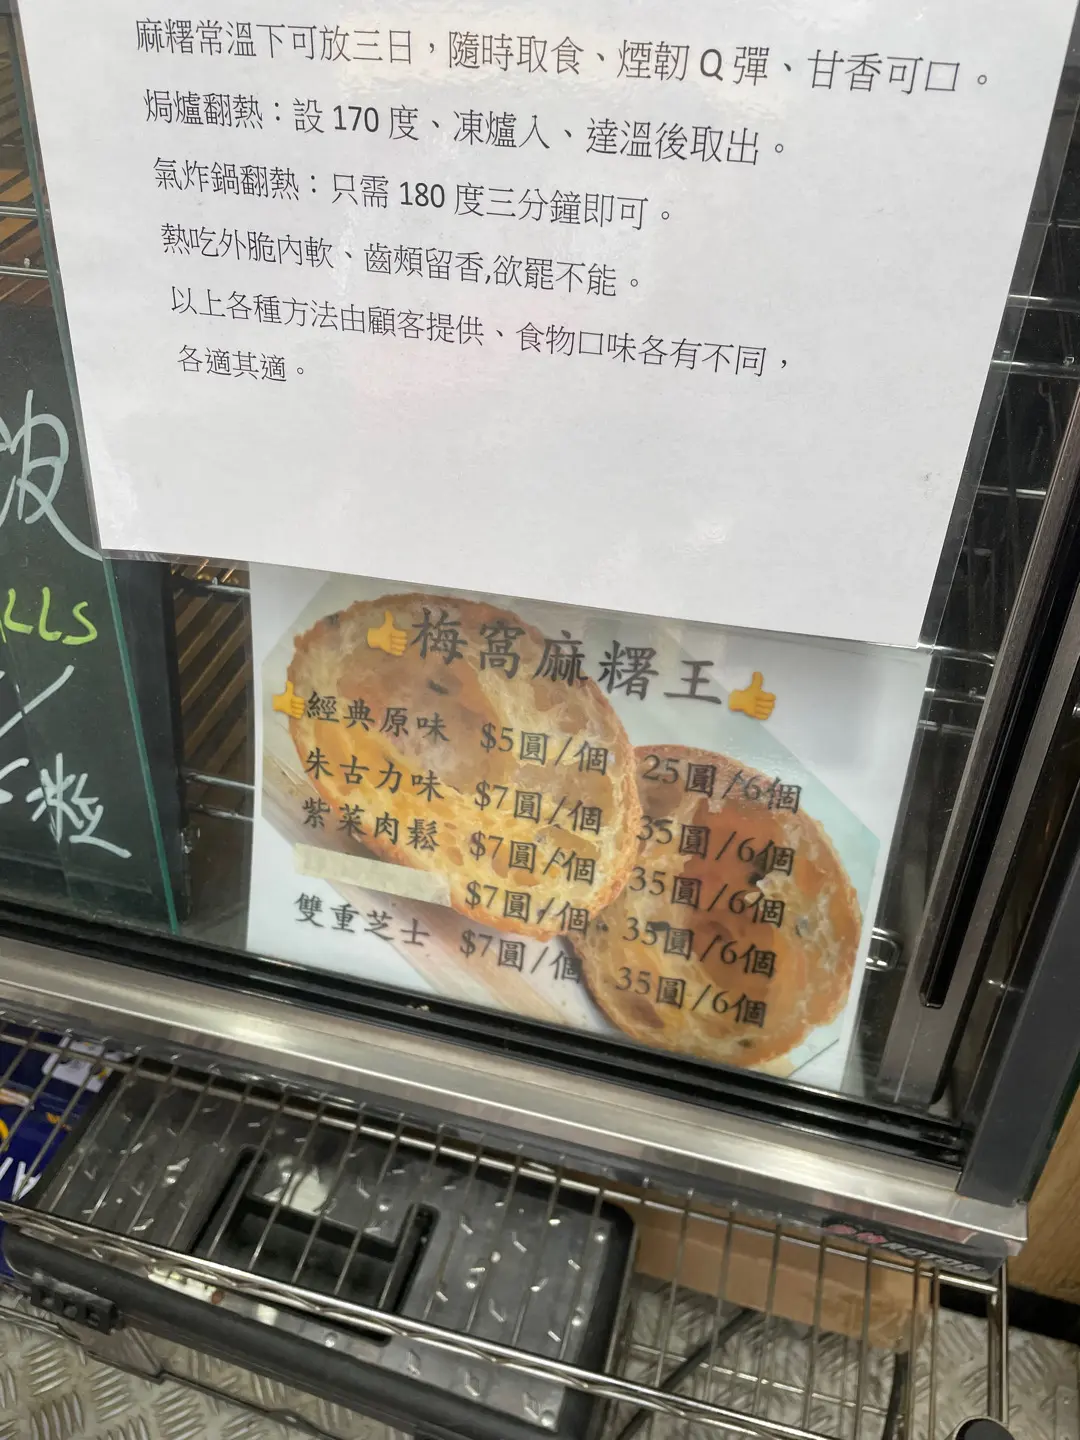 麻糬常溫下可放三日，隨時取食、煙韌 Q 彈、甘香可口。
焗爐翻熱：設 170 度、凍爐入、達溫後取出。
氣炸鍋翻熱：只需 180 度三分鐘即可。
熱吃外脆內軟、齒頰留香,欲罷不能。
以上各種方法由顧客提供、食物口味各有不同，
各適其適。
波
LLS
粒
👍梅窩麻糬王👍
👍經典原味 $5圓/個 25圓/6個
朱古力味 $7圓/個 35圓/6個
紫菜肉鬆 $7圓/個 35圓/6個
$7圓/個 35圓/6個
雙重芝士 $7圓/個 35圓/6個